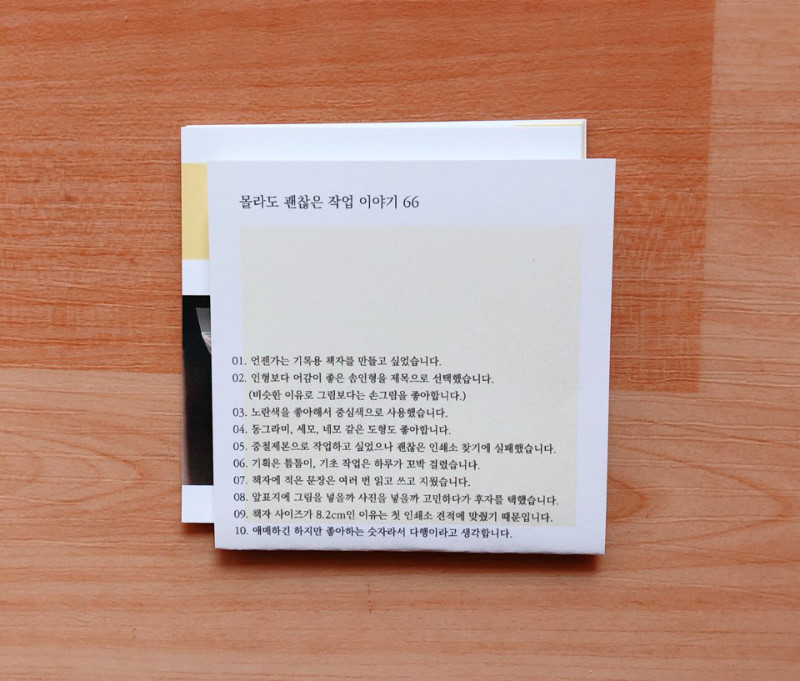 몰라도 괜찮은 작업 이야기 66
01. 언젠가는 기록용 책자를 만들고 싶었습니다.
02. 인형보다 어감이 좋은 솜인형을 제목으로 선택했습니다.
(비슷한 이유로 그림보다는 손그림을 좋아합니다.)
03. 노란색을 좋아해서 중심색으로 사용했습니다.
04. 동그라미, 세모, 네모 같은 도형도 좋아합니다.
05. 중철제본으로 작업하고 싶었으나 괜찮은 인쇄소 찾기에 실패했습니다.
06. 기획은 틈틈이, 기초 작업은 하루가 꼬박 걸렸습니다.
07. 책자에 적은 문장은 여러 번 읽고 쓰고 지웠습니다.
08. 앞표지에 그림을 넣을까 사진을 넣을까 고민하다가 후자를 택했습니다.
09. 책자 사이즈가 8.2cm인 이유는 첫 인쇄소 견적에 맞췄기 때문입니다.
10. 애매하긴 하지만 좋아하는 숫자라서 다행이라고 생각합니다.